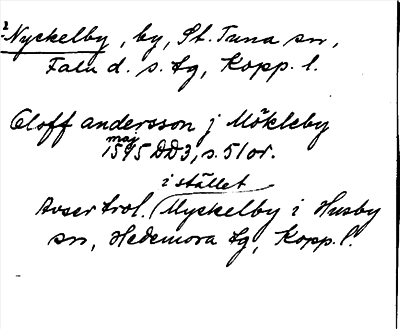 Nyckelby, by, St. Tuna sn,
Falu d. s. tg, Kopp. l.
Oloff andersson j Mökleby
maj
1595 DD3, s. 51 or.
i stället
Avser trol. Myckelby i Husby
sn, Hedemora tg, Kopp. l.